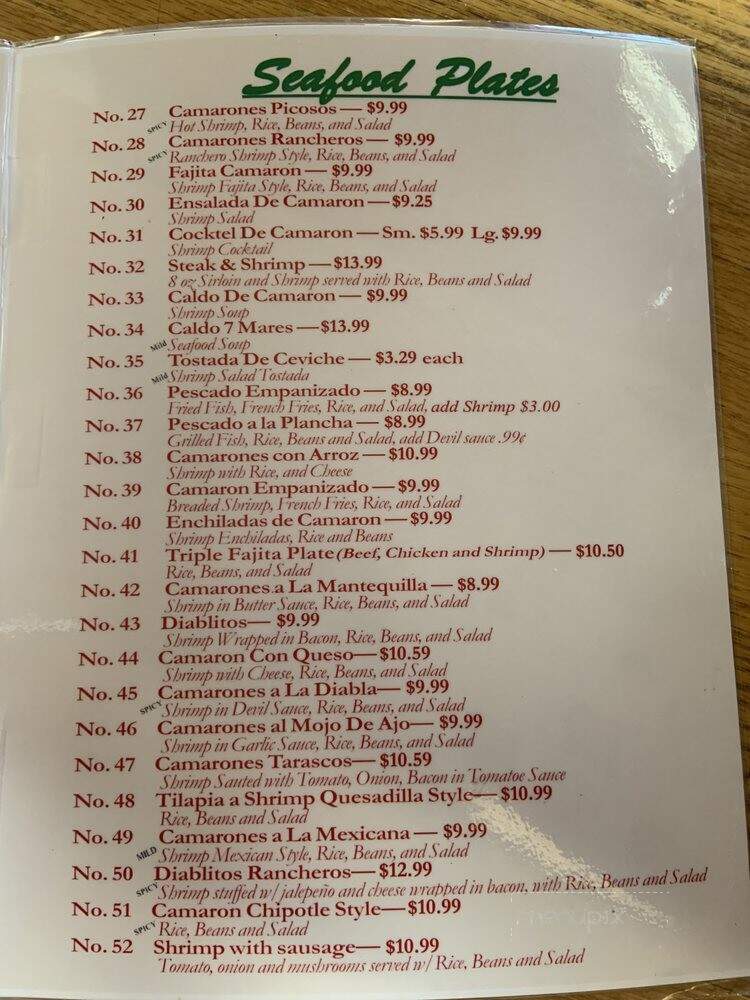 Seafood Plates
No. 27 Camarones Picosos — $9.99
SPICY Hot Shrimp, Rice, Beans, and Salad
No. 28 Camarones Rancheros — $9.99
SPICY Ranchero Shrimp Style, Rice, Beans, and Salad
No. 29 Fajita Camaron — $9.99
Shrimp Fajita Style, Rice, Beans, and Salad
No. 30 Ensalada De Camaron — $9.25
Shrimp Salad
No. 31 Cocktel De Camaron — Sm. $5.99 Lg. $9.99
Shrimp Cocktail
No. 32 Steak & Shrimp — $13.99
8 oz Sirloin and Shrimp served with Rice, Beans and Salad
No. 33 Caldo De Camaron — $9.99
Shrimp Soup
No. 34 Caldo 7 Mares — $13.99
Mild Seafood Soup
No. 35 Tostada De Ceviche — $3.29 each
Mild Shrimp Salad Tostada
No. 36 Pescado Empanizado — $8.99
Fried Fish, French Fries, Rice, and Salad, add Shrimp $3.00
No. 37 Pescado a la Plancha — $8.99
Grilled Fish, Rice, Beans and Salad, add Devil sauce .99¢
No. 38 Camarones con Arroz — $10.99
Shrimp with Rice, and Cheese
No. 39 Camaron Empanizado — $9.99
Breaded Shrimp, French Fries, Rice, and Salad
No. 40 Enchiladas de Camaron — $9.99
Shrimp Enchiladas, Rice and Beans
No. 41 Triple Fajita Plate (Beef, Chicken and Shrimp) — $10.50
Rice, Beans, and Salad
No. 42 Camarones a La Mantequilla — $8.99
Shrimp in Butter Sauce, Rice, Beans, and Salad
No. 43 Diablitos — $9.99
Shrimp Wrapped in Bacon, Rice, Beans, and Salad
No. 44 Camaron Con Queso — $10.59
Shrimp with Cheese, Rice, Beans, and Salad
No. 45 Camarones a La Diabla — $9.99
SPICY Shrimp in Devil Sauce, Rice, Beans, and Salad
No. 46 Camarones al Mojo De Ajo — $9.99
Shrimp in Garlic Sauce, Rice, Beans, and Salad
No. 47 Camarones Tarascos — $10.59
Shrimp Sauted with Tomato, Onion, Bacon in Tomatoe Sauce
No. 48 Tilapia a Shrimp Quesadilla Style — $10.99
Rice, Beans and Salad
No. 49 Camarones a La Mexicana — $9.99
MILD Shrimp Mexican Style, Rice, Beans, and Salad
No. 50 Diablitos Rancheros — $12.99
SPICY Shrimp stuffed w/ jalepeño and cheese wrapped in bacon, with Rice, Beans and Salad
No. 51 Camaron Chipotle Style — $10.99
SPICY Rice, Beans and Salad
No. 52 Shrimp with sausage — $10.99
Tomato, onion and mushrooms served w/ Rice, Beans and Salad